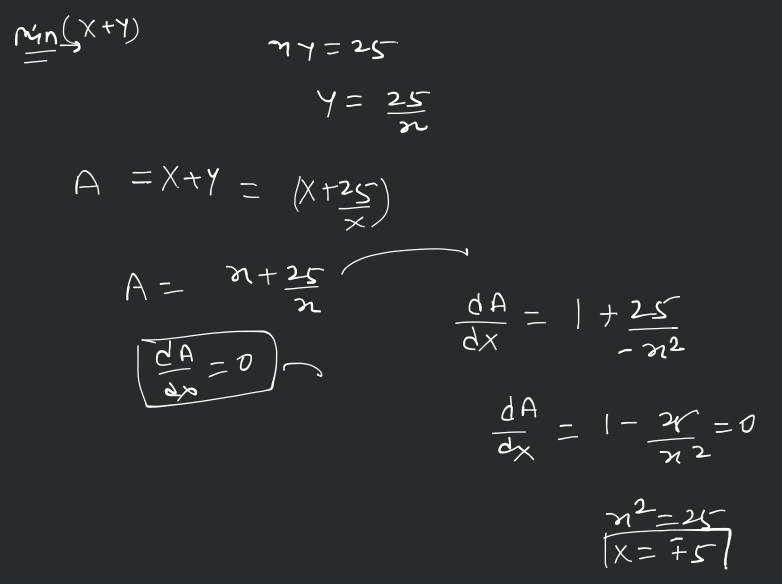 min (X+Y)
xy = 25
y = 25/x
A = X+Y = (X+25/x)
A = x + 25/x
dA/dx = 0
dA/dx = 1 + 25/-x²
dA/dx = 1 - 25/x² = 0
x² = 25
X = ∓5